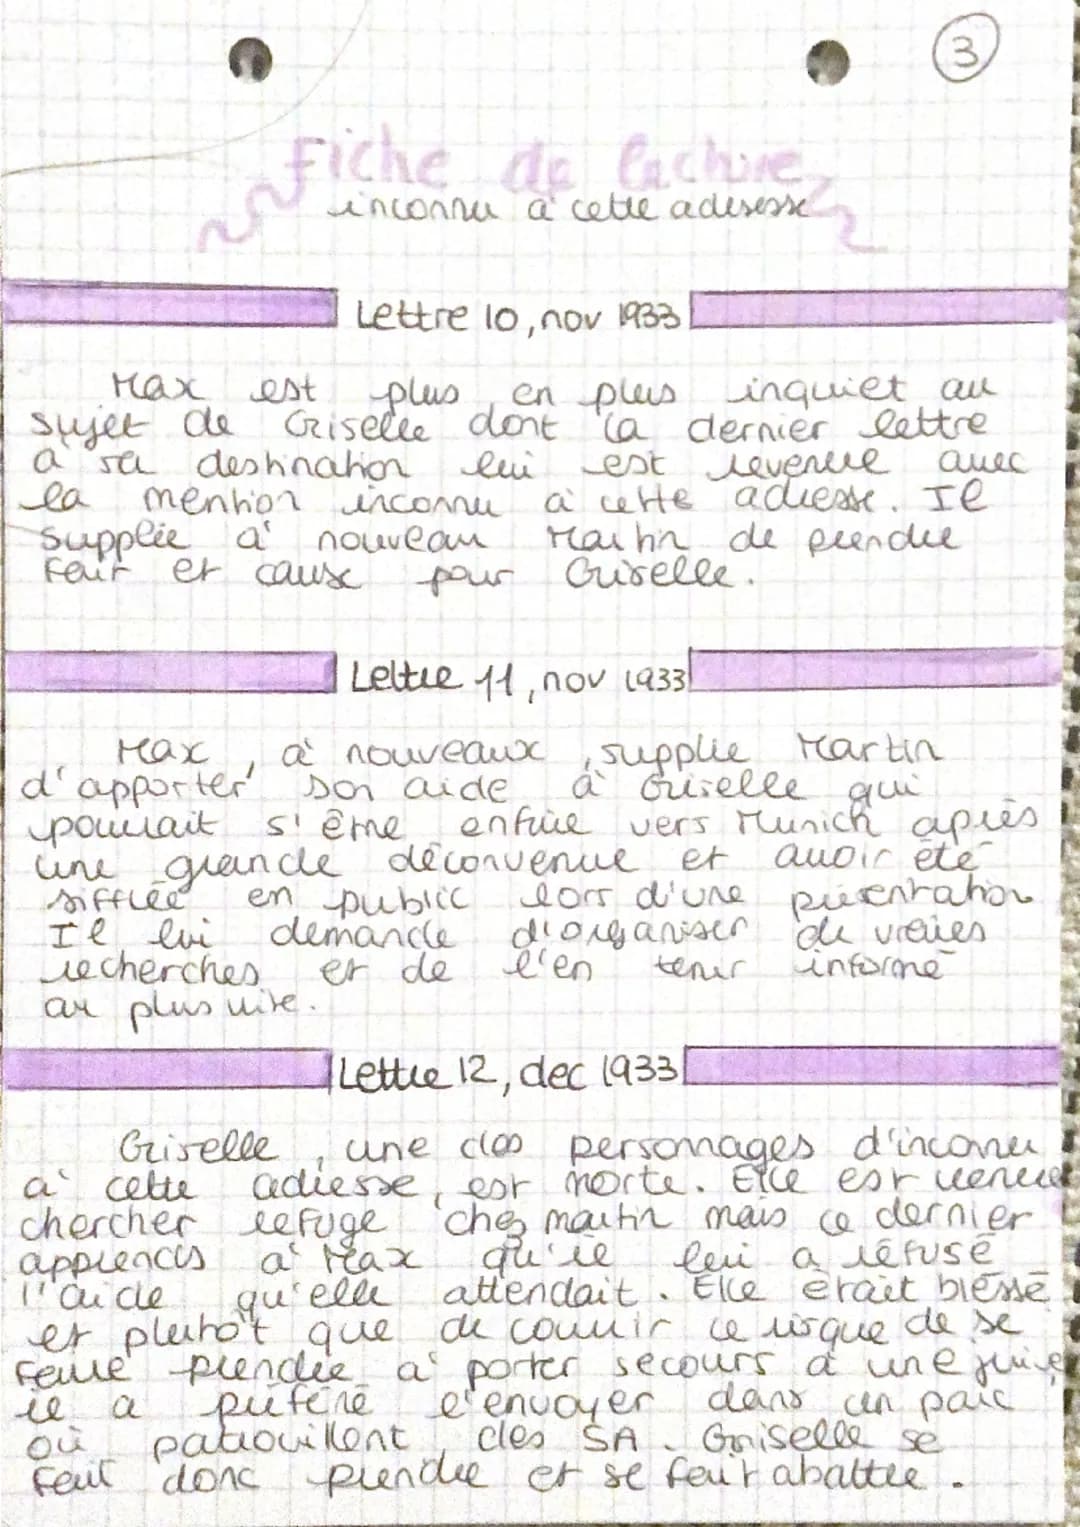 3
Fiche de lecture
inconnu à cette adresse
Lettre 10, nov 1933
Max est plus en plus inquiet au
sujet de Griselle dont la dernier lettre
à sa destination lui est revenue avec
la mention inconnu à cette adresse. Il
supplie à nouveau Martin de prendre
fait et cause pour Griselle.
Lettre 11, nov 1933
Max, à nouveaux, supplie Martin
d'apporter son aide à Griselle qui
pourrait s'être enfuie vers Munich après
une grande déconvenue et avoir été
sifflée en public lors d'une présentation
Il lui demande d'organiser de vraies
recherches et de l'en tenir informé
au plus vite.
Lettre 12, dec 1933
Griselle, une des personnages d'inconnu
à cette adresse, est morte. Elle est venue
chercher refuge chez martin mais ce dernier
apprends à Max qu'il lui a refusé
l'aide qu'elle attendait. Elle était blessé
et plutôt que de courrir le risque de se
faire prendre à porter secours à une juive
il a préféré l'envoyer dans un parc
où patrouillent des SA. Griselle se
fait donc prendre et se fait abattre.